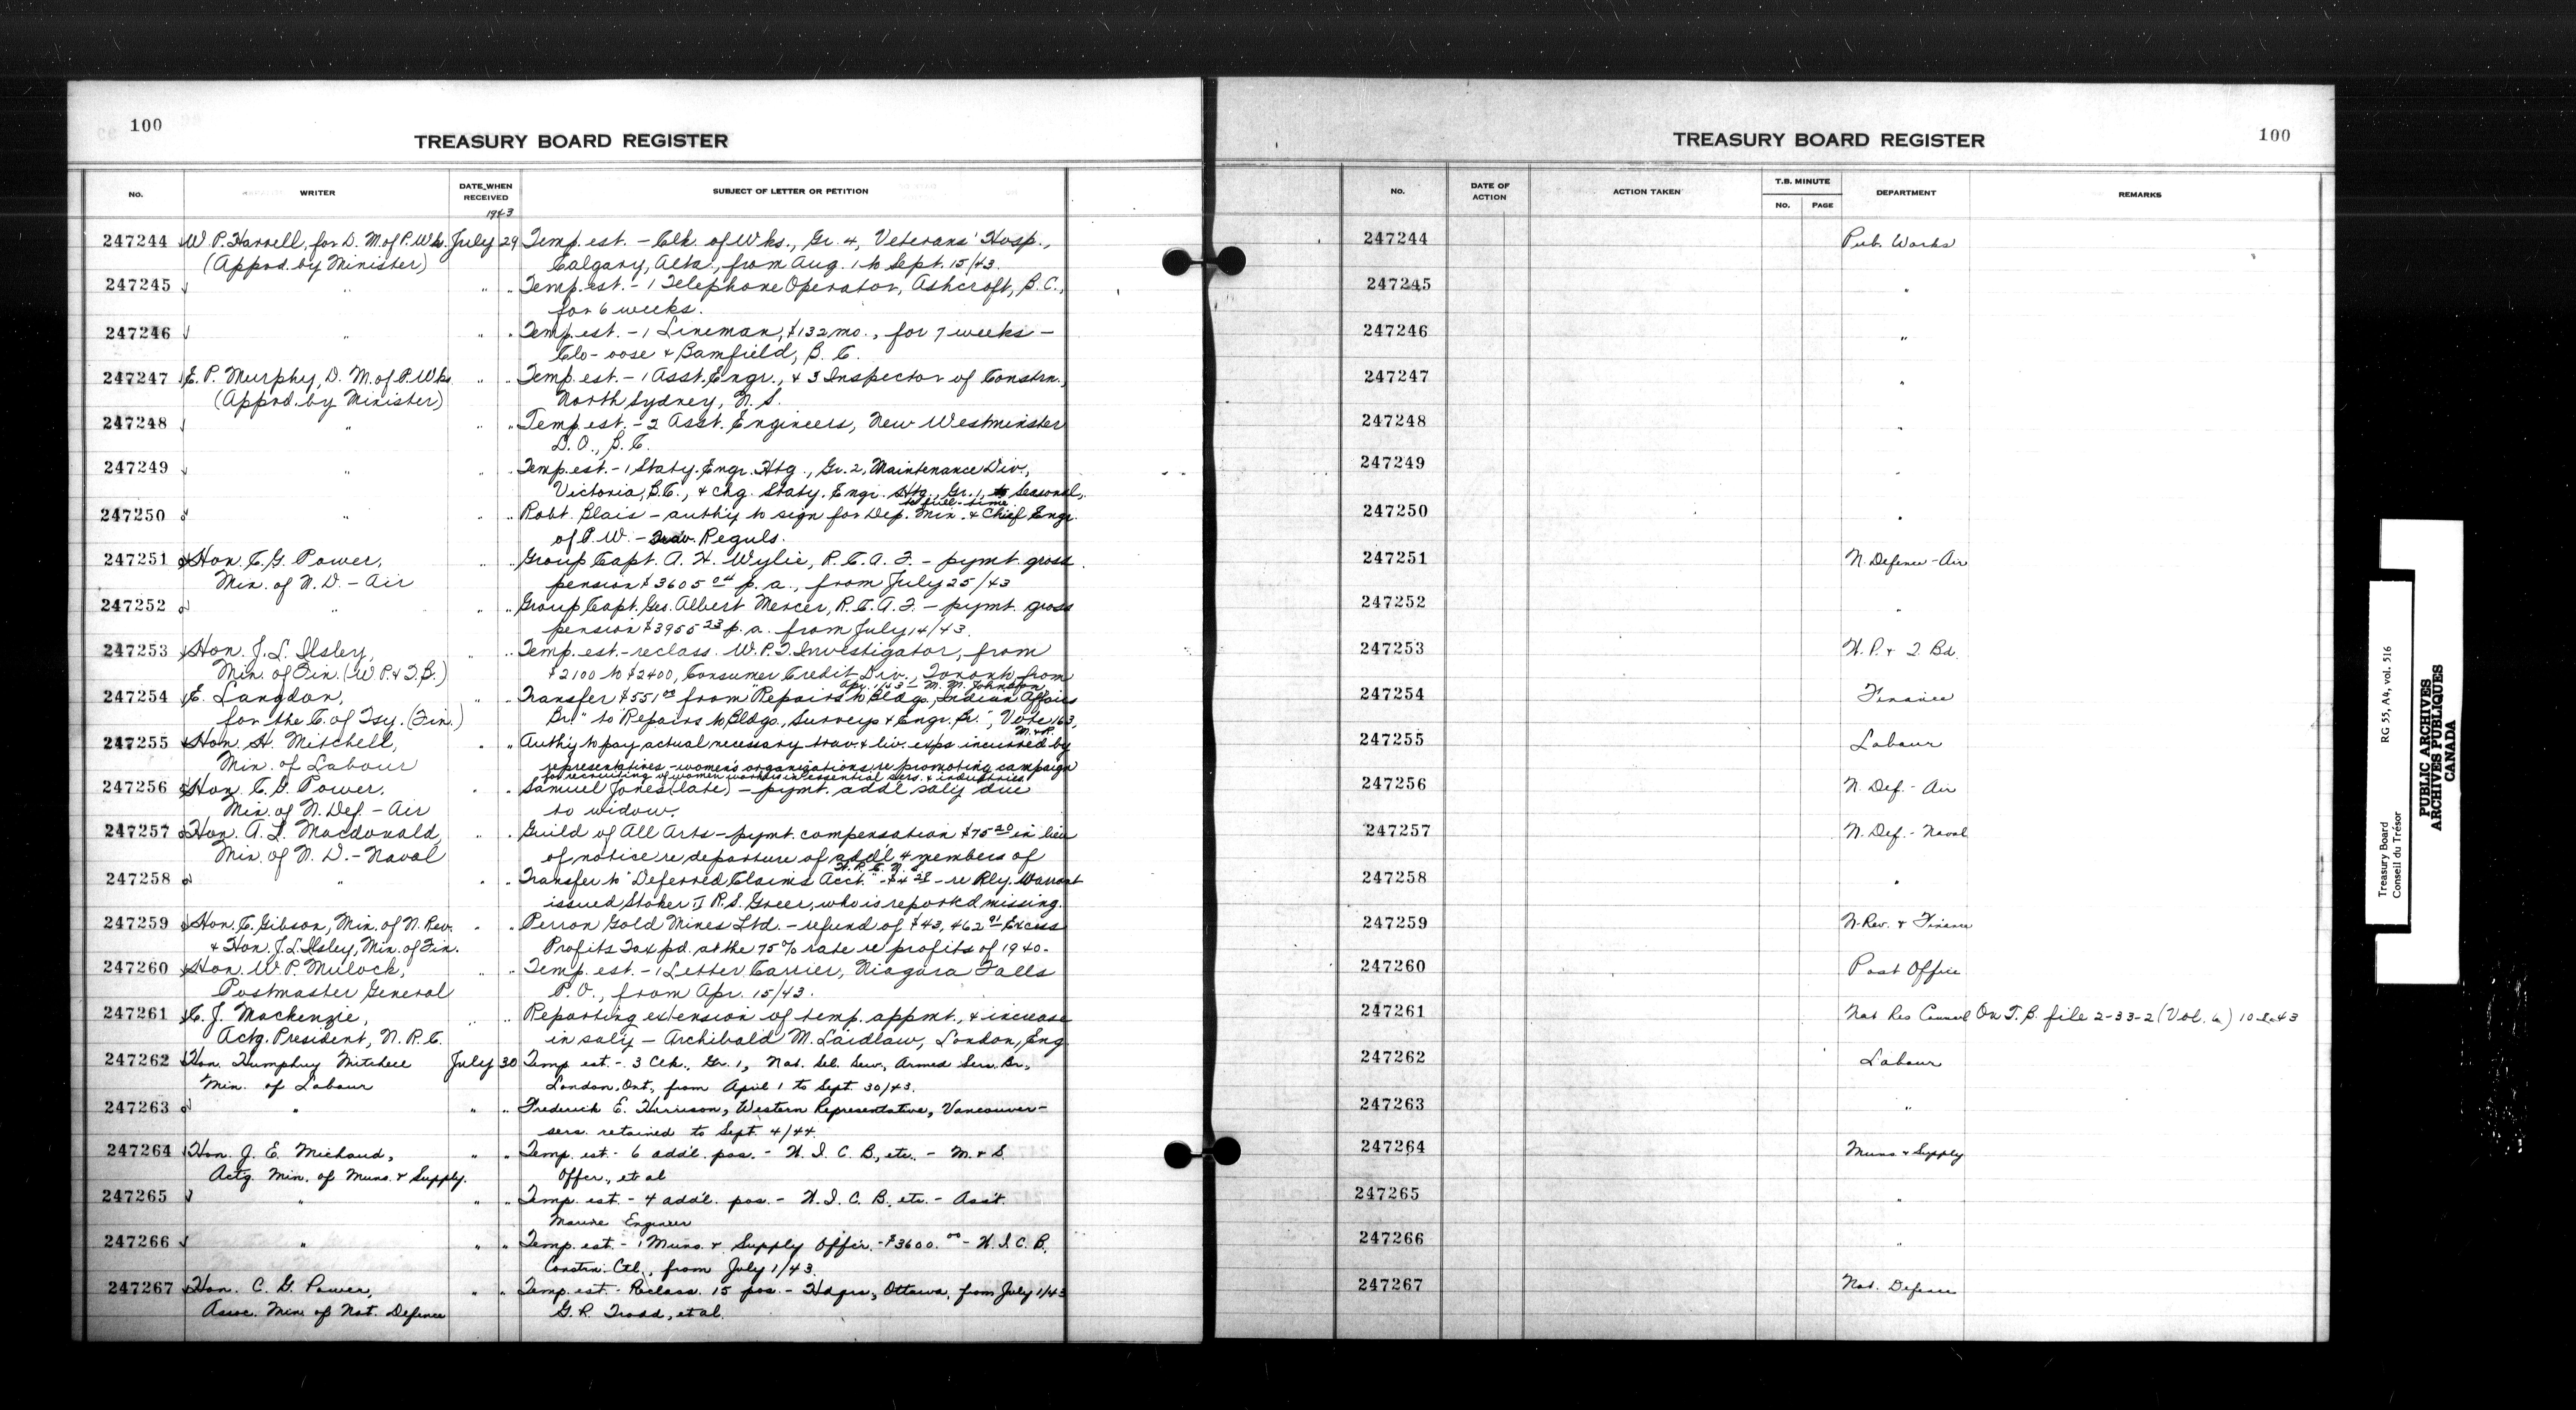 100
TREASURY BOARD REGISTER
NO. WRITER DATE WHEN RECEIVED SUBJECT OF LETTER OR PETITION
1943
247244 W. P. Harrell, for D. M. of P. Wks. July 29 Temp. est. - Clk. of Wks., Gr. 4, Veterans' Hosp.,
(Apprd. by Minister) Calgary, Alta., from Aug. 1 to Sept. 15/43.
247245 " " " Temp. est. - 1 Telephone Operator, Ashcroft, B.C.,
for 6 weeks.
247246 " " Temp. est. - 1 Lineman, $132 mo., for 7 weeks -
Clo-oose & Bamfield, B. C.
247247 E. P. Murphy, D. M. of P. Wks. " " Temp. est. - 1 Asst. Engr., & 3 Inspector of Constrn.,
(Apprd. by Minister) North Sydney, N. S.
247248 " " " Temp. est. - 2 Asst. Engineers, New Westminster
D.O., B.C.
247249 " " " Temp. est. - 1 Staty. Engr. Htg., Gr. 2, Maintenance Div.,
Victoria, B.C., & chg. Staty. Engr. Htg., Gr. 1, Seasonal,
to full-time.
247250 " " " Robt. Blais - auth'y to sign for Dep. Min. & Chief Engr.
of P. W. - Trav. Reguls.
247251 Hon. C. G. Power, " " Group Capt. A. H. Wylie, R. C. A. F. - pymt. gross
Min. of N. D. - Air pension $3605.04 p. a., from July 25/43
247252 " " " Group Capt. Geo. Albert Mercer, R. C. A. F. - pymt. gross
pension $3955.23 p. a. from July 14/43.
247253 Hon. J. L. Ilsley, " " Temp. est. - reclass. W. P. T. Investigator, from
Min. of Fin. (W. P. & T. B.) $2100 to $2400, Consumer Credit Div., Toronto from
Apr. 1/43 - M. M. Johnston
247254 E. Langdon, " " Transfer $551 from "Repairs to Bldgs., Indian Affairs
for the C. of Tsy. (Fin.) Br." to "Repairs to Bldgs., Surveys & Engr. Br.", Vote 163,
M. & R.
247255 Hon. H. Mitchell, " " Auth'y to pay actual necessary trav. & liv. exps. incurred by
Min. of Labour representatives - women's organizations re promoting campaign
for recruiting of women workers in essential sers. & industries
247256 Hon. C. G. Power, " " Samuel Jones (late) - pymt. addl. sal'y due
Min. of N. Def. - Air to widow.
247257 Hon. A. L. Macdonald, " " Guild of All Arts - pymt. compensation $75.00 in lieu
Min. of N. D. - Naval of notice re departure of addl. 4 members of
W. R. C. N. S.
247258 " " " Transfer to "Deferred Claims Acct." - $4.28 - re Rly. Warrant
issued Stoker I R. S. Greer, who is reported missing.
247259 Hon. C. Gibson, Min. of N. Rev. " " Perron Gold Mines Ltd. - refund of $43,462.91 Excess
& Hon. J. L. Ilsley, Min. of Fin. Profits Tax pd. at the 75% rate re profits of 1940.
247260 Hon. W. P. Mulock, " " Temp. est. - 1 Letter Carrier, Niagara Falls
Postmaster General P. O., from Apr. 15/43.
247261 C. J. Mackenzie, " " Reporting extension of temp. appmt., & increase
Actg. President, N. R. C. in sal'y - Archibald M. Laidlaw, London, Eng.
247262 Hon. Humphrey Mitchell July 30 Temp. est. - 3 Clk., Gr. 1, Nat. Sel. Serv., Armed Serv. Br.,
Min. of Labour London, Ont., from April 1 to Sept. 30/43.
247263 " " " Frederick E. Harrison, Western Representative, Vancouver -
sers. retained to Sept. 4/44.
247264 Hon. J. E. Michaud, " " Temp. est. - 6 add'l. pos. - W. I. C. B., etc. - M. & S.
Actg. Min. of Muns. & Supply. Offcr., et al
247265 " " " Temp. est. - 4 add'l. pos. - W. I. C. B. etc. - Ass't.
Marine Engineer
247266 " " " Temp. est. - 1 Muns. & Supply Offcr. - $3600.00 - W. I. C. B.
Constrn. Ctl., from July 1/43.
247267 Hon. C. G. Power, " " Temp. est. - Reclass. 15 pos. - Hdqrs., Ottawa, from July 1/43
Assoc. Min. of Nat. Defence G. R. Trodd, et al.
TREASURY BOARD REGISTER
100
NO. DATE OF ACTION ACTION TAKEN T.B. MINUTE NO. PAGE DEPARTMENT REMARKS
247244 Pub. Works
247245 "
247246 "
247247 "
247248 "
247249 "
247250 "
247251 N. Defence - Air
247252 "
247253 W. P. & T. Bd.
247254 Finance
247255 Labour
247256 N. Def. - Air
247257 N. Def. - Naval
247258 "
247259 N. Rev. & Finance
247260 Post Office
247261 Nat Res Council On T. B. file 2-33-2 (Vol. 6) 10-8-43
247262 Labour
247263 "
247264 Muns. & Supply
247265 "
247266 "
247267 Nat. Defence
Treasury Board
Conseil du Trésor
RG 55, A4, vol. 516
PUBLIC ARCHIVES
ARCHIVES PUBLIQUES
CANADA